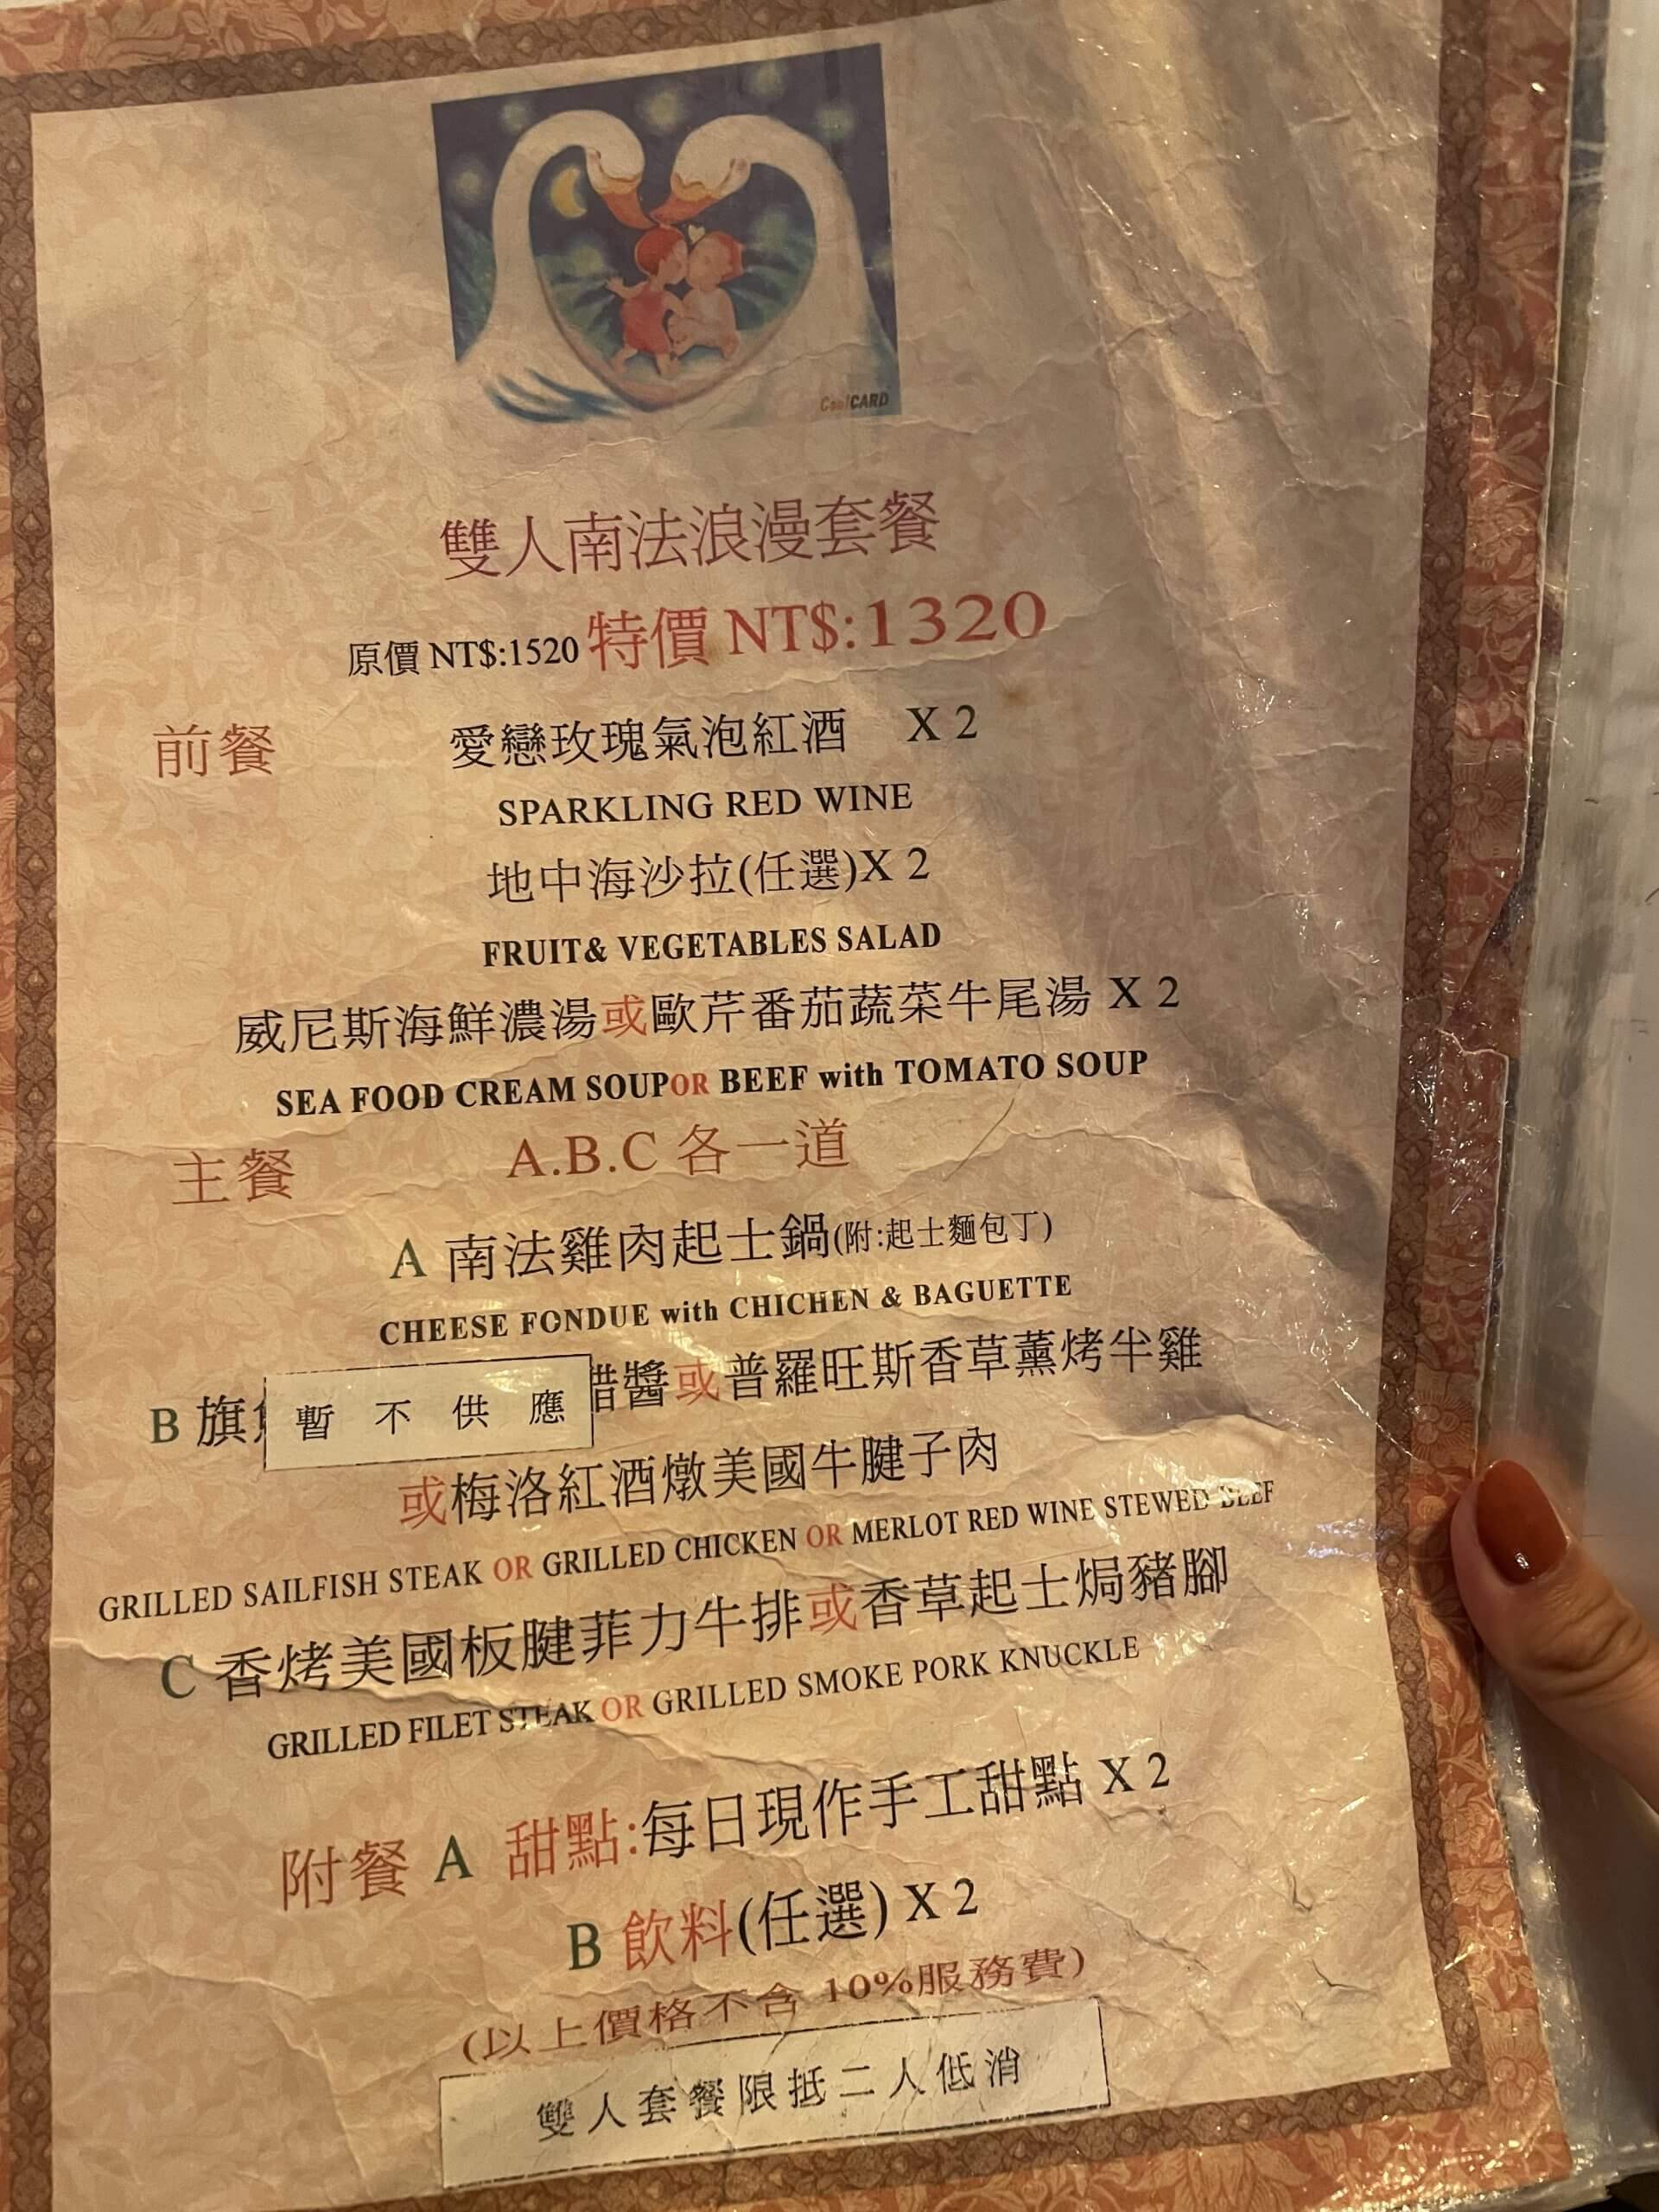 CoolCARD
雙人南法浪漫套餐
原價 NT$:1520 特價 NT$:1320
前餐 愛戀玫瑰氣泡紅酒 X 2
SPARKLING RED WINE
地中海沙拉(任選)X 2
FRUIT& VEGETABLES SALAD
威尼斯海鮮濃湯或歐芹番茄蔬菜牛尾湯 X 2
SEA FOOD CREAM SOUPOR BEEF with TOMATO SOUP
主餐 A.B.C 各一道
A 南法雞肉起士鍋(附:起士麵包丁)
CHEESE FONDUE with CHICHEN & BAGUETTE
B 旗 暫不供應 醋醬或普羅旺斯香草薰烤半雞
或梅洛紅酒燉美國牛腱子肉
GRILLED SAILFISH STEAK OR GRILLED CHICKEN OR MERLOT RED WINE STEWED BEEF
C 香烤美國板腱菲力牛排或香草起士焗豬腳
GRILLED FILET STEAK OR GRILLED SMOKE PORK KNUCKLE
附餐 A 甜點:每日現作手工甜點 X 2
B 飲料(任選) X 2
(以上價格不含 10%服務費)
雙人套餐限抵二人低消